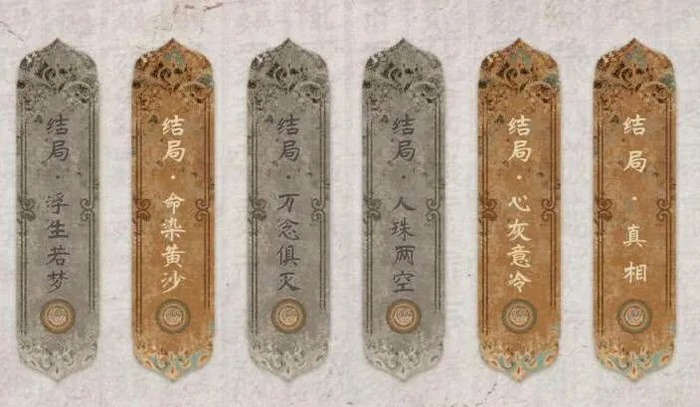 结局·浮生若梦
结局·命染黄沙
结局·万念俱灭
结局·人珠两空
结局·心灰意冷
结局·真相